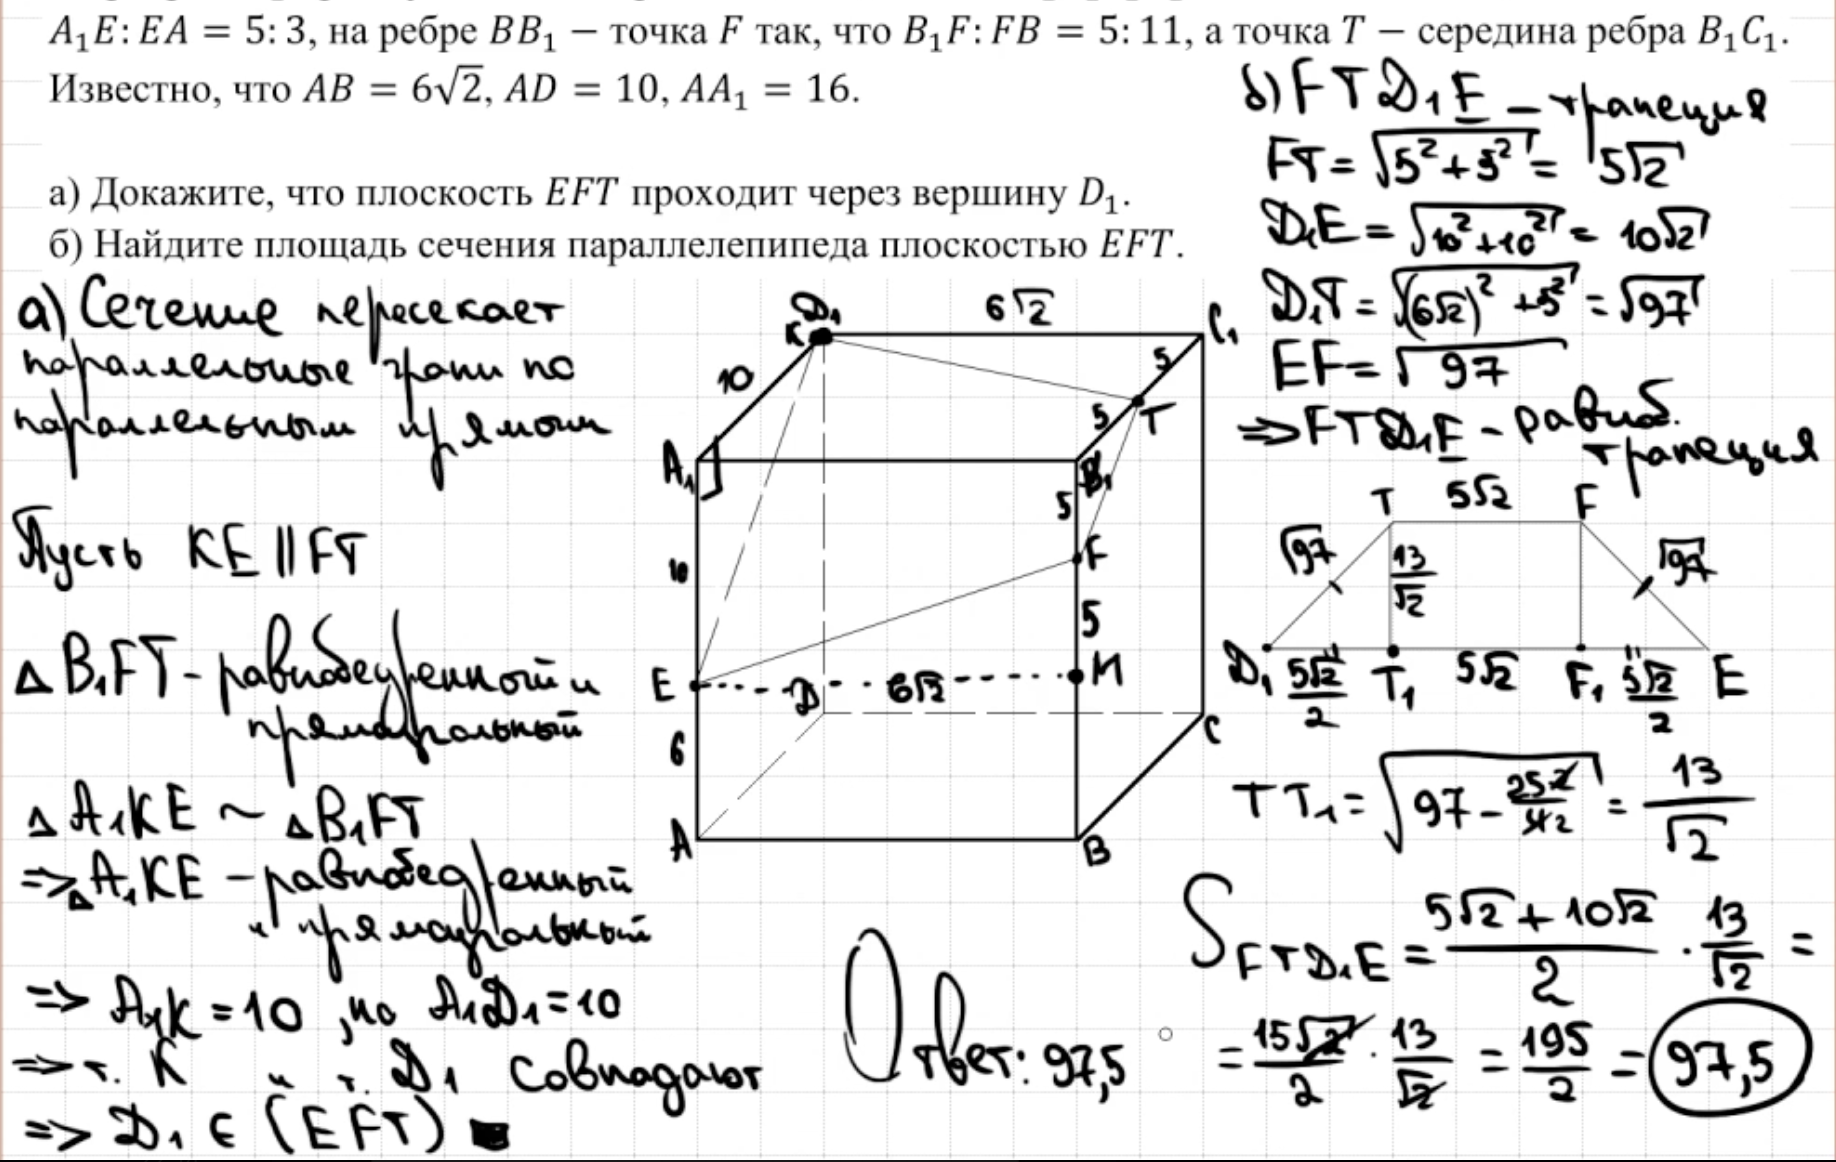 A₁E: EA = 5: 3, на ребре BB₁ − точка F так, что B₁F: FB = 5: 11, а точка T − середина ребра B₁C₁.
Известно, что AB = 6√2, AD = 10, AA₁ = 16.
а) Докажите, что плоскость EFT проходит через вершину D₁.
б) Найдите площадь сечения параллелепипеда плоскостью EFT.
а) Сечение пересекает
параллельные грани по
параллельным прямым
Пусть KE || FT
Δ B₁FT - равнобедренный и
прямоугольный
Δ A₁KE ~ Δ B₁FT
=> Δ A₁KE - равнобедренный
и прямоугольный
=> A₁K = 10, но A₁D₁ = 10
=> т. K и т. D₁ совпадают
=> D₁ ∈ (EFT)
D₁
K
6√2
C₁
10
5
T
5
A₁
B₁
5
F
10
5
E
D
6√2
M
6
C
A
B
б) FTD₁E - трапеция
FT = √(5² + 5²) = 5√2
D₁E = √(10² + 10²) = 10√2
D₁T = √((6√2)² + 5²) = √97
EF = √97
=> FTD₁E - равноб.
трапеция
T 5√2 F
√97 13/√2 √97
D₁ 5√2/2 T₁ 5√2 F₁ 5√2/2 E
TT₁ = √(97 - 25·2/4 2) = 13/√2
S FTD₁E = (5√2 + 10√2)/2 · 13/√2 =
= 15√2/2 · 13/√2 = 195/2 = 97,5
Ответ: 97,5